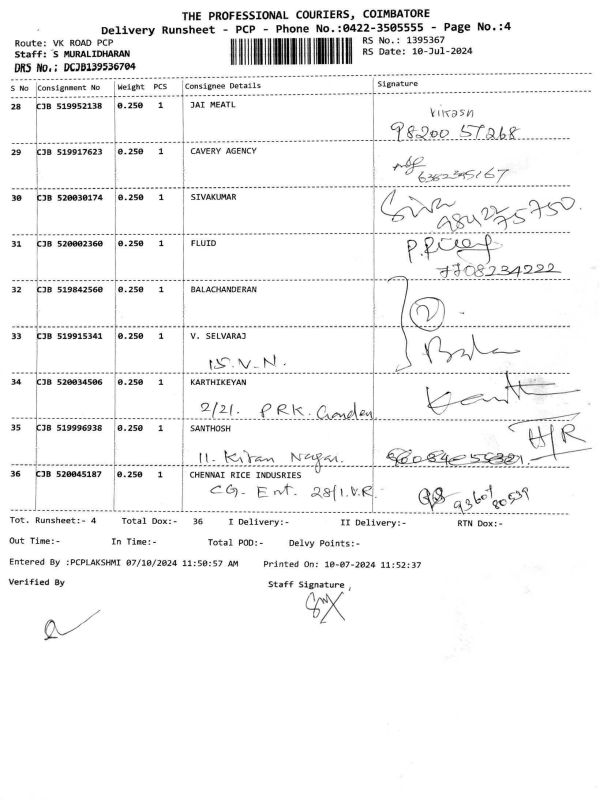 THE PROFESSIONAL COURIERS, COIMBATORE
Delivery Runsheet - PCP - Phone No.:0422-3505555 - Page No.:4
Route: VK ROAD PCP
RS No.: 1395367
Staff: S MURALIDHARAN
RS Date: 10-Jul-2024
DRS No.: DCJB139536704
S No Consignment No Weight PCS Consignee Details Signature
28 CJB 519952138 0.250 1 JAI MEATL
Vikash
98200 57268
29 CJB 519917623 0.250 1 CAVERY AGENCY
6382395167
30 CJB 520030174 0.250 1 SIVAKUMAR
Siva
98422 75750
31 CJB 520002360 0.250 1 FLUID
7708234222
32 CJB 519842560 0.250 1 BALACHANDERAN
2
33 CJB 519915341 0.250 1 V. SELVARAJ
15.V.N.
Bala
34 CJB 520034506 0.250 1 KARTHIKEYAN
2/21. PRK. Garden
35 CJB 519996938 0.250 1 SANTHOSH
H/R
11. Kiran Nagar.
36 CJB 520045187 0.250 1 CHENNAI RICE INDUSRIES
CG. Ent. 28/1.V.R.
93607 80539
Tot. Runsheet:- 4 Total Dox:- 36 I Delivery:- II Delivery:- RTN Dox:-
Out Time:- In Time:- Total POD:- Delvy Points:-
Entered By :PCPLAKSHMI 07/10/2024 11:50:57 AM Printed On: 10-07-2024 11:52:37
Verified By Staff Signature